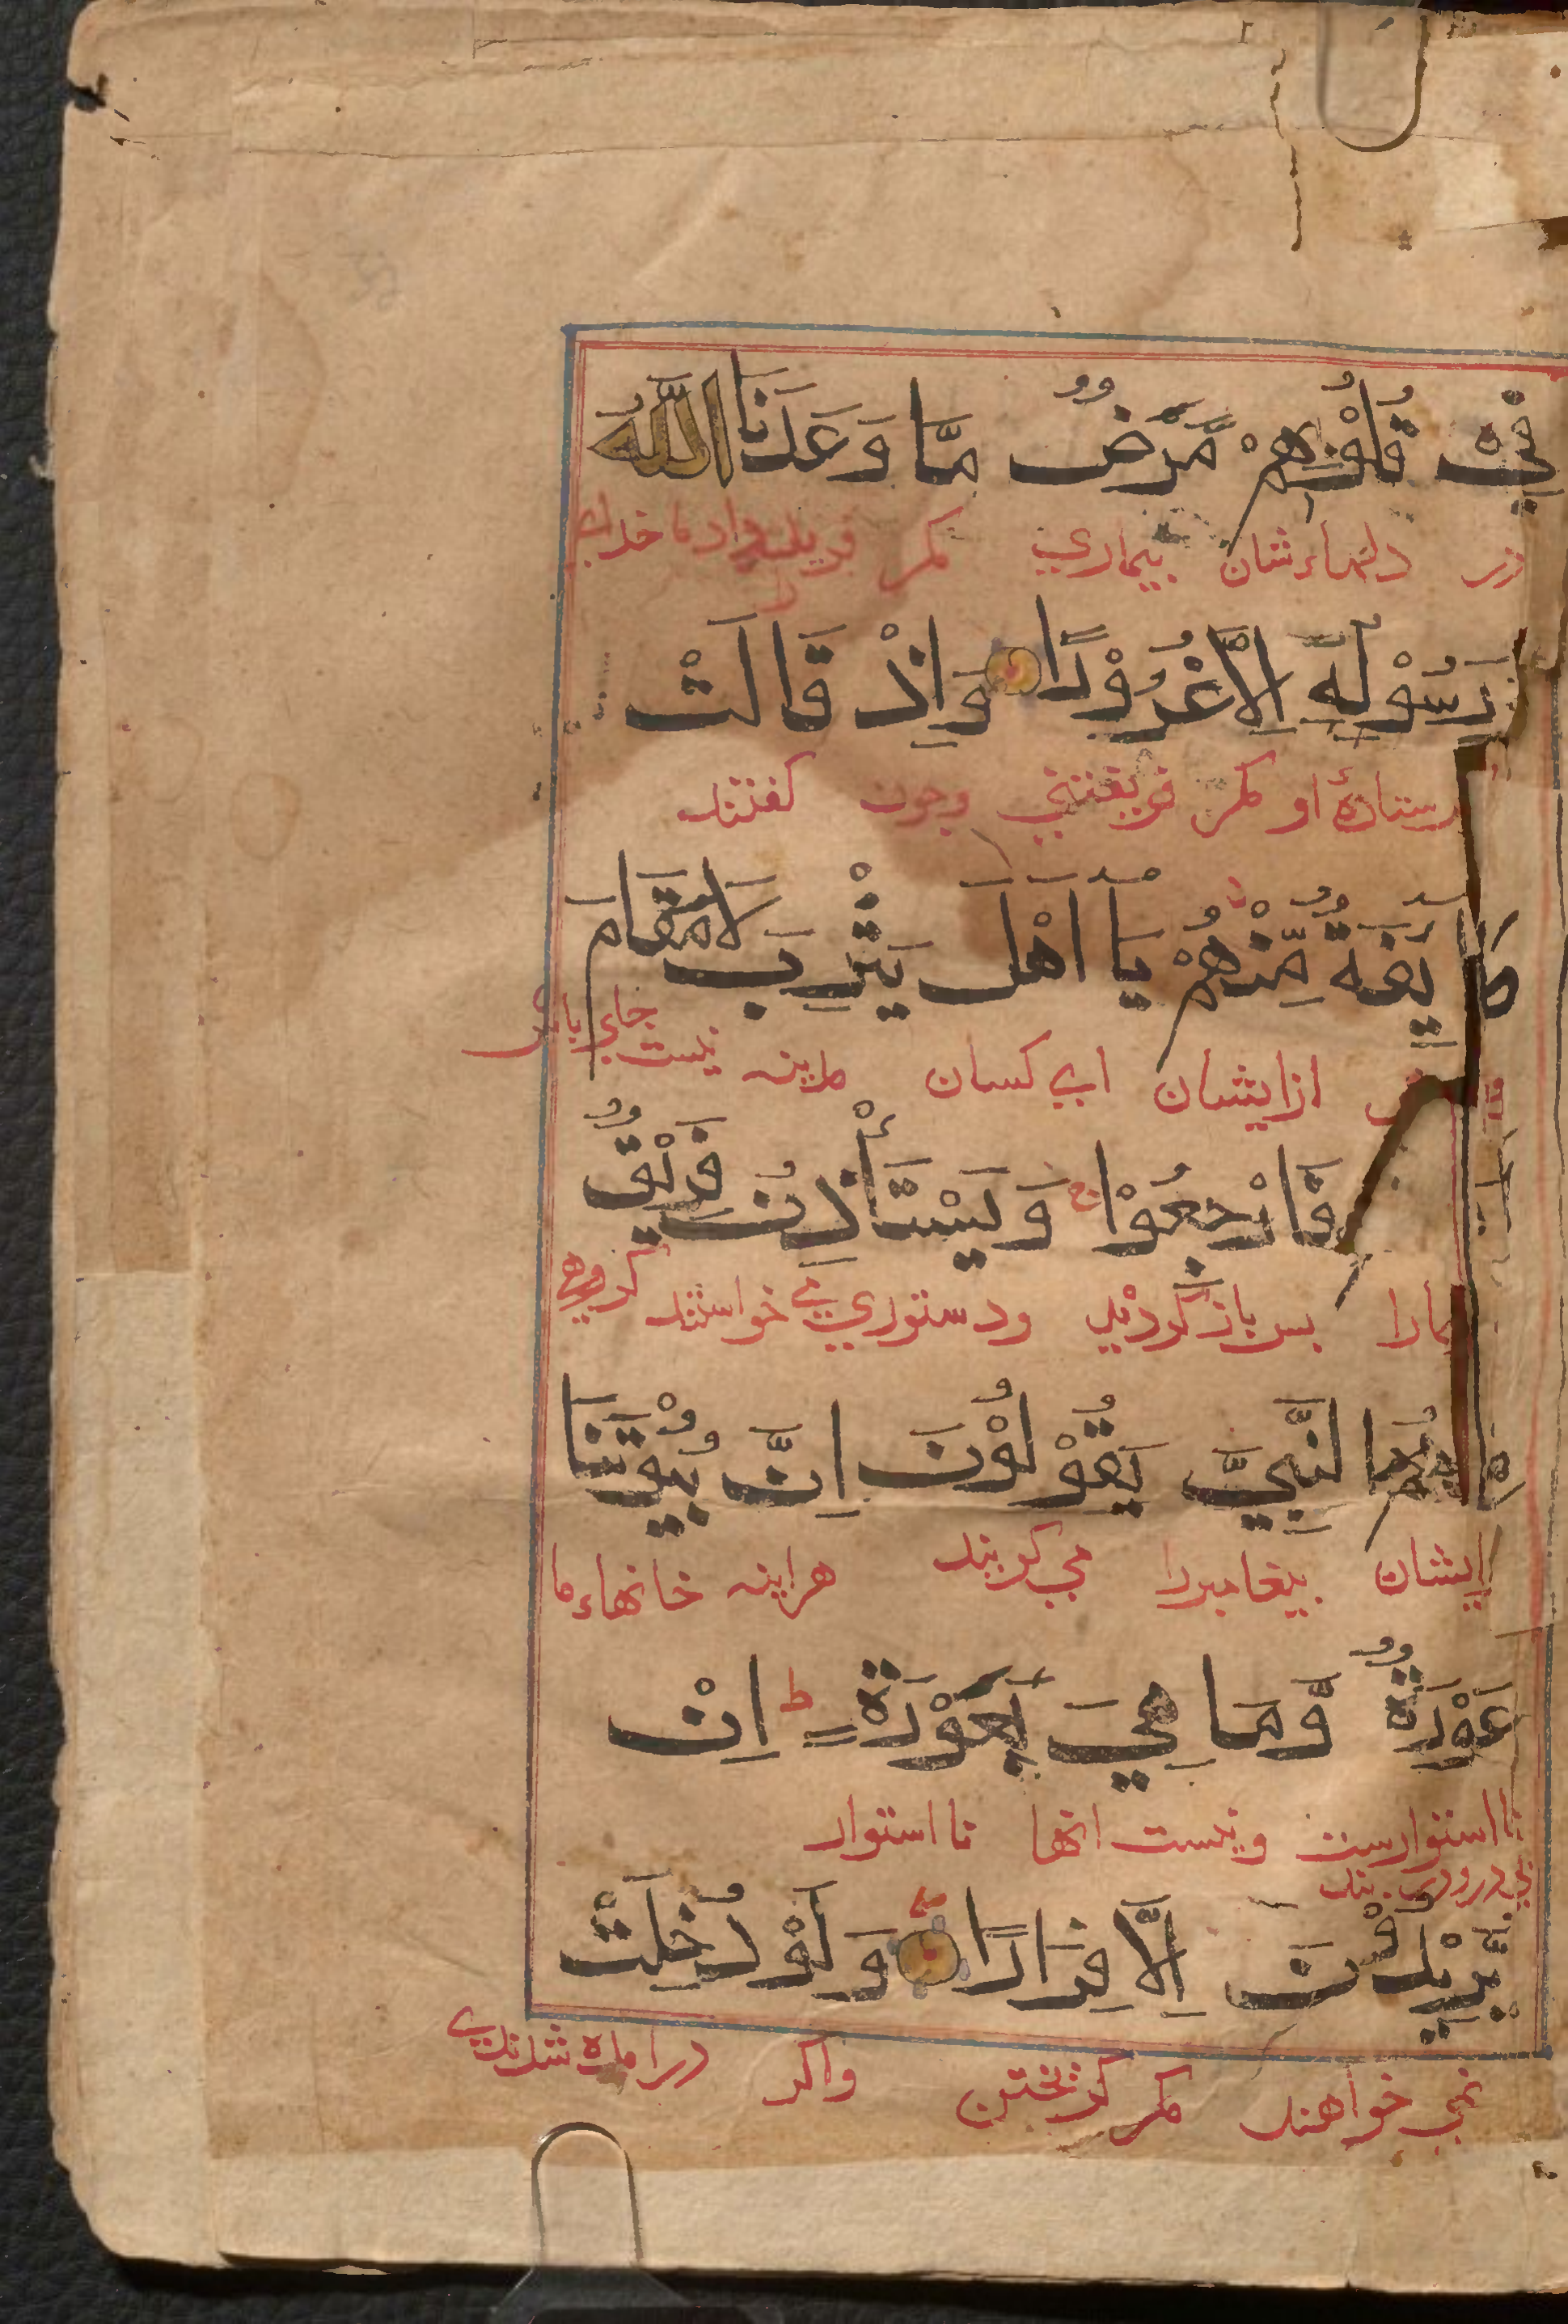 فِيْ قُلُوْبِهِمْ مَّرَضٌ مَّا وَعَدَنَا اللّٰهُ
در دلهاءشان بیماري مكر فریب داد ما خداي
رَسُوْلُهٗ اِلَّا غُرُوْرًا وَاِذْ قَالَتْ
رستادهٔ او مكر فریفتنی وچون كفتند
طَآئِفَةٌ مِّنْهُمْ يَا اَهْلَ يَثْرِبَ لَا مُقَامَ
ازایشان ای كسان مدینه نیست جاي باش
فَارْجِعُوْا وَيَسْتَأْذِنُ فَرِيْقٌ
مارا پس باز كردید ودستوري می خواستند كروهی
مِّنْهُمُ النَّبِيَّ يَقُوْلُوْنَ اِنَّ بُيُوْتَنَا
ایشان پیغامبررا می كویند هراینه خانهاءما
عَوْرَةٌ وَّمَا هِيَ بِعَوْرَةٍ ط اِنْ
نااستوارست ونیست انها نا استوار
يُّرِيْدُوْنَ اِلَّا فِرَارًا وَلَوْ دُخِلَتْ
نمی خواهند مكر كریختن واكر درامده شدندی